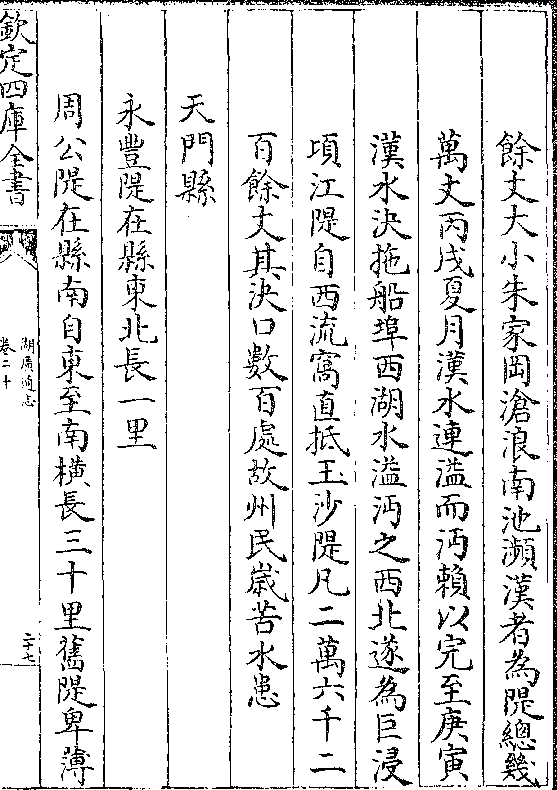 餘丈大小朱家岡滄浪南池瀕漢者為隄總幾
萬丈丙戌夏月漢水連溢而沔賴以完至庚寅
漢水決拖船埠西湖水溢沔之西北遂為巨浸
項江隄自西流窩直抵玉沙隄凡二萬六千二
百餘丈其決口數百處故州民歲苦水患
天門縣
永豐隄在縣東北長一里
周公隄在縣南自東至南橫長三十里舊隄卑薄
欽定四庫全書
湖廣通志
卷二十
二十七